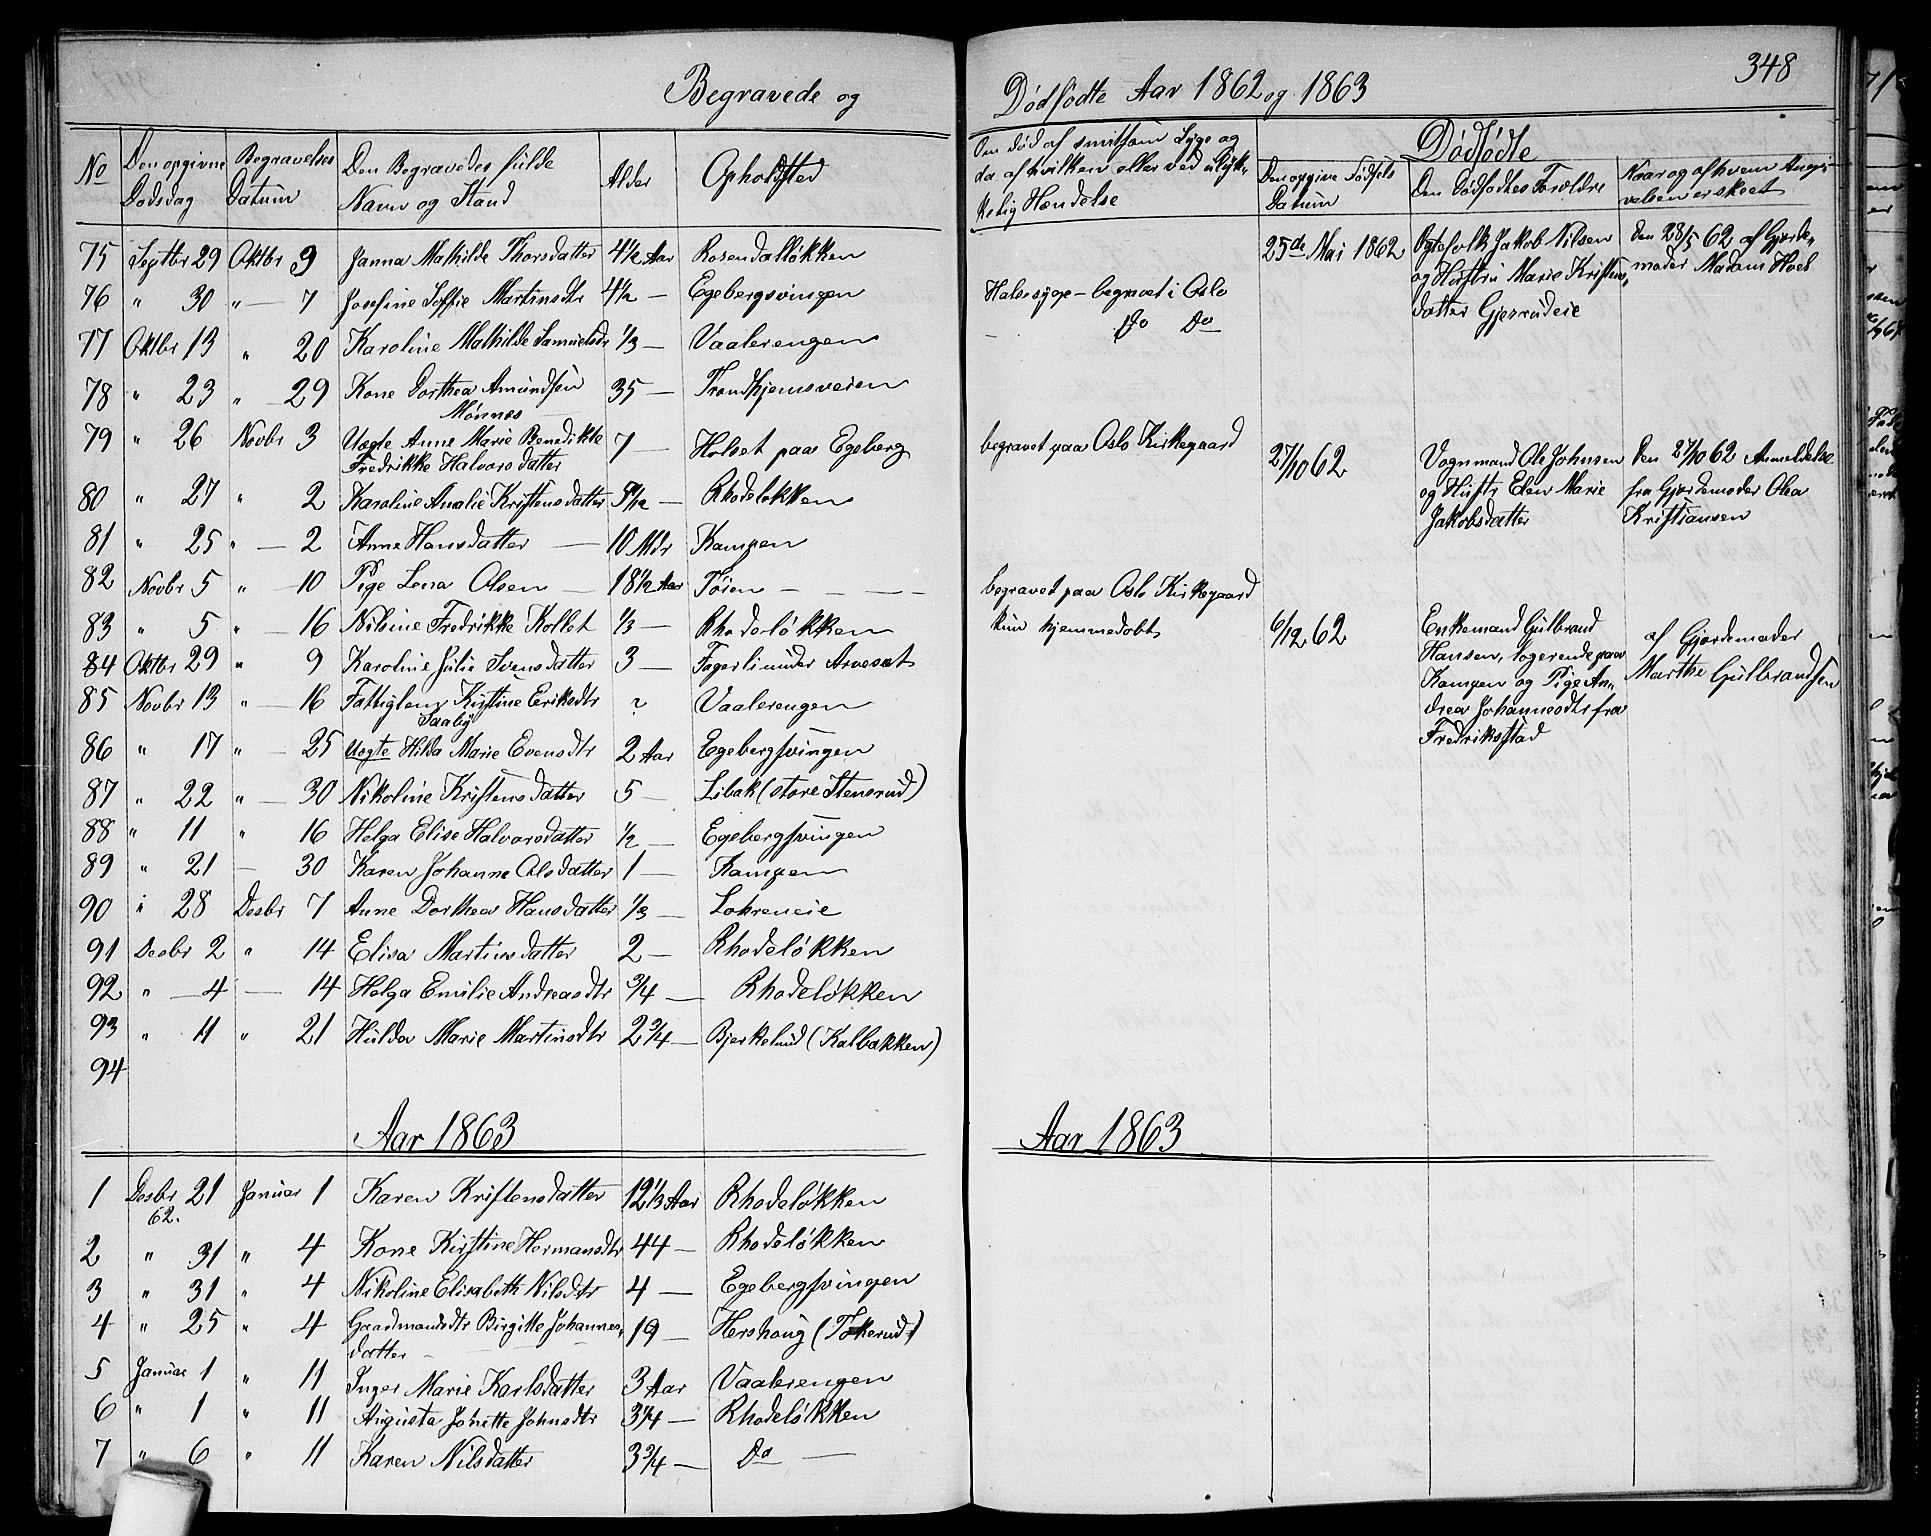 348
Begravede og Dødfødte Aar 1862 og 1863
No | Den opgivne Dødsdag | Begravelses Datum | Den Begravedes fulde Navn og Stand | Alder | Opholdsted
75 Septbr 29 Oktbr 9 Janna Mathilde Thorsdatter 4½ Aar Rosendalløkken
76 " 30 " — 7 Josefine Soffie Martinsdtr 4½ — Egebergsvingen
77 Oktbr 13 " 20 Karoline Mathilde Samuelsdr ⅓ — Vaalerengen
78 " 23 " — 29 Kone Dorthea Amundsen 35 — Trondhjemsveien
Mønnes
79 " 26 Novbr 3 Uægte Anne Marie Benedikte 7 — Holset paa Egeberg
Fredrikke Halvorsdatter
80 " 27 " 2 Karoline Amalie Kristensdatter 5/12 — Rhodeløkken
81 " 25 " — 2 Anne Hansdatter — 10 Mdr Kampen
82 Novbr 5 " — 10 Pige Lena Olsen — 18½ Aar Tøien — — — —
83 " 5 " — 16 Nilsine Fredrikke Kollet ⅓ — Rhodeløkken
84 Oktbr 29 " 9 Karoline Julie Svensdatter 3 — Fagerli under Arvesæt
85 Novbr 13 " — 16 Fattiglem Kirstine Eriksdtr ? Vaalerengen
Saaby
86 " 17 " — 25 Uægte Hilda Marie Evensdtr 2 Aar Egebergsvingen
87 " 22 " — 30 Nikoline Kristensdatter 5 — Libak (store Stensrud)
88 " 11 " 16 Helga Elise Halvorsdatter ½ — Egebergsvingen
89 " 21 — 30 Karen Johanne Olsdatter 1 — Kampen
90 " 28 Desbr 7 Anne Dorthea Hansdatter ⅓ — Lohreneie
91 Desbr 2 " 14 Elisa Martinsdatter 2 — Rhodeløkken
92 " — 4 — 14 Helga Emilie Andreasdtr ¾ — Rhodeløkken
93 " 11 " 21 Hulda Marie Martinsdtr 2¾ — Bjerkelund (Kalbakken)
94
Aar 1863
1 Desbr 21 Januar 1 Karen Kristensdatter 12⅓ Aar Rhodeløkken
62.
2 " 31 " 4 Kone Kirstine Hermansdtr 44 — Rhodeløkken
3 " 31 " 4 Nikoline Elisabeth Nilsdtr 4 — Egebergsvingen
4 " 25 " 4 Gaardmandsdtr Birgitte Johannes- 19 — Hershoug (Tokerud)
datter
5 Januar 1 " 11 Inger Marie Karlsdatter 3 Aar Vaalerengen
6 " 1 " 11 Augusta Jonette Johnsdtr 3¼ — Rhodeløkken
7 " 6 " 11 Karen Nilsdatter 3¾ — Do —
Om død af smitsom Syge og
da af hvilken eller ved ulyk-
kelig Hændelse
Dødfødte
Den opgivne Fødsels Datum | Den Dødfødtes Forældre | Naar og af hvem Angi-
velsen er skeet
Halssyge — begravet i Oslo
— Do Do
begravet paa Oslo Kirkegaard
begravet paa Oslo Kirkegaard
kun hjemmedøbt
25de Mai 1862
Ægtefolk Jakob Nilsen
og Hustru Marie Kristens-
datter Gjerrudeie
Den 28/5 62 af Gjorde-
moder Madam Hoel
27/10 62
Vognmand Ole Johnsen
og Hustr Elen Marie
Jakobsdatter
Den 27/10 62 Anmeldelse
fra Gjordemoder Olea
Kristiansen
6/12 62
Enkemand Gulbrand
Hansen, logerende paa
Kampen og Pige An-
drea Johannesdtr fra
Fredriksstad
af Gjordemoder
Marthe Gulbrandsen
Aar 1863